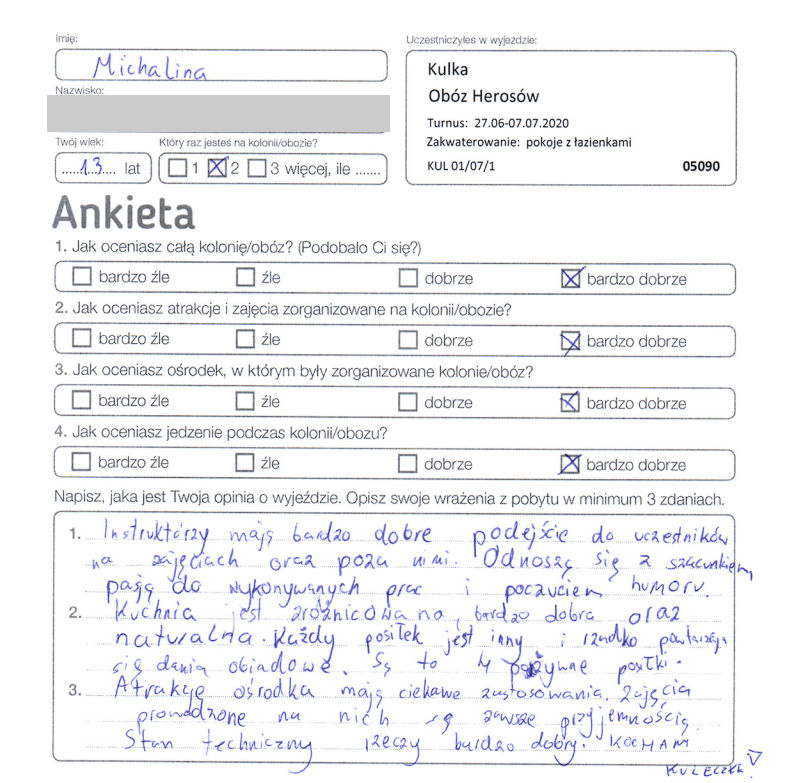 Imię:
Michalina
Nazwisko:
Twój wiek:
13 lat
Który raz jesteś na kolonii/obozie?
1 2 3 więcej, ile .......
Uczestniczyłeś w wyjeździe:
Kulka
Obóz Herosów
Turnus: 27.06-07.07.2020
Zakwaterowanie: pokoje z łazienkami
KUL 01/07/1 05090
Ankieta
1. Jak oceniasz całą kolonię/obóz? (Podobało Ci się?)
bardzo źle źle dobrze bardzo dobrze
2. Jak oceniasz atrakcje i zajęcia zorganizowane na kolonii/obozie?
bardzo źle źle dobrze bardzo dobrze
3. Jak oceniasz ośrodek, w którym były zorganizowane kolonie/obóz?
bardzo źle źle dobrze bardzo dobrze
4. Jak oceniasz jedzenie podczas kolonii/obozu?
bardzo źle źle dobrze bardzo dobrze
Napisz, jaka jest Twoja opinia o wyjeździe. Opisz swoje wrażenia z pobytu w minimum 3 zdaniach.
1. Instruktorzy mają bardzo dobre podejście do uczestników
na zajęciach oraz poza nimi. Odnoszą się z szacunkiem,
pasją do wykonywanych prac i poczuciem humoru.
2. Kuchnia jest zróżnicowana, bardzo dobra oraz
naturalna. Każdy posiłek jest inny i rzadko powtarzają
się dania obiadowe. Są to 4 pożywne posiłki.
3. Atrakcje ośrodka mają ciekawe zastosowania. Zajęcia
prowadzone na nich są zawsze przyjemnością.
Stan techniczny rzeczy bardzo dobry. KOCHAM
KULECZKĘ